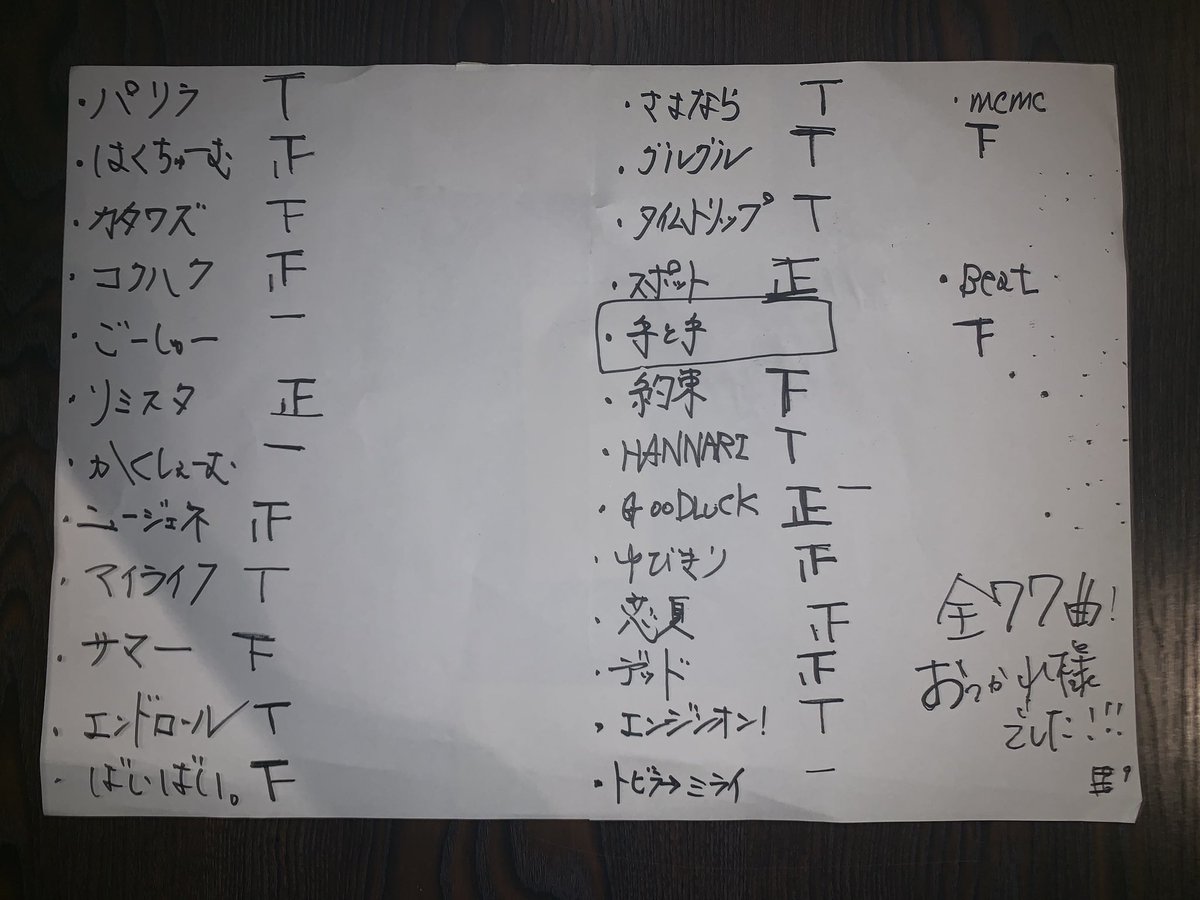 ・パリラ T
・はくちゅーむ 正
・カタワズ 下
・コクハク 正
・ごーしゅー 一
・リミスタ 正
・かくしぇーむ 一
・ニュージェネ 正
・マイライフ T
・サマー 下
・エンドロール T
・ばいばい。 下
・さよなら T
・グルグル T
・タイムトリップ T
・スポット 正
・手と手
・約束 下
・HANNARI T
・GOODLUCK 正一
・ゆびきり 正
・恋夏 正
・デッド 正
・エンジンオン! T
・トビラ→ミライ 一
・mcmc
下
・Beat
下
全77曲!
おつかれ様
でした!!!